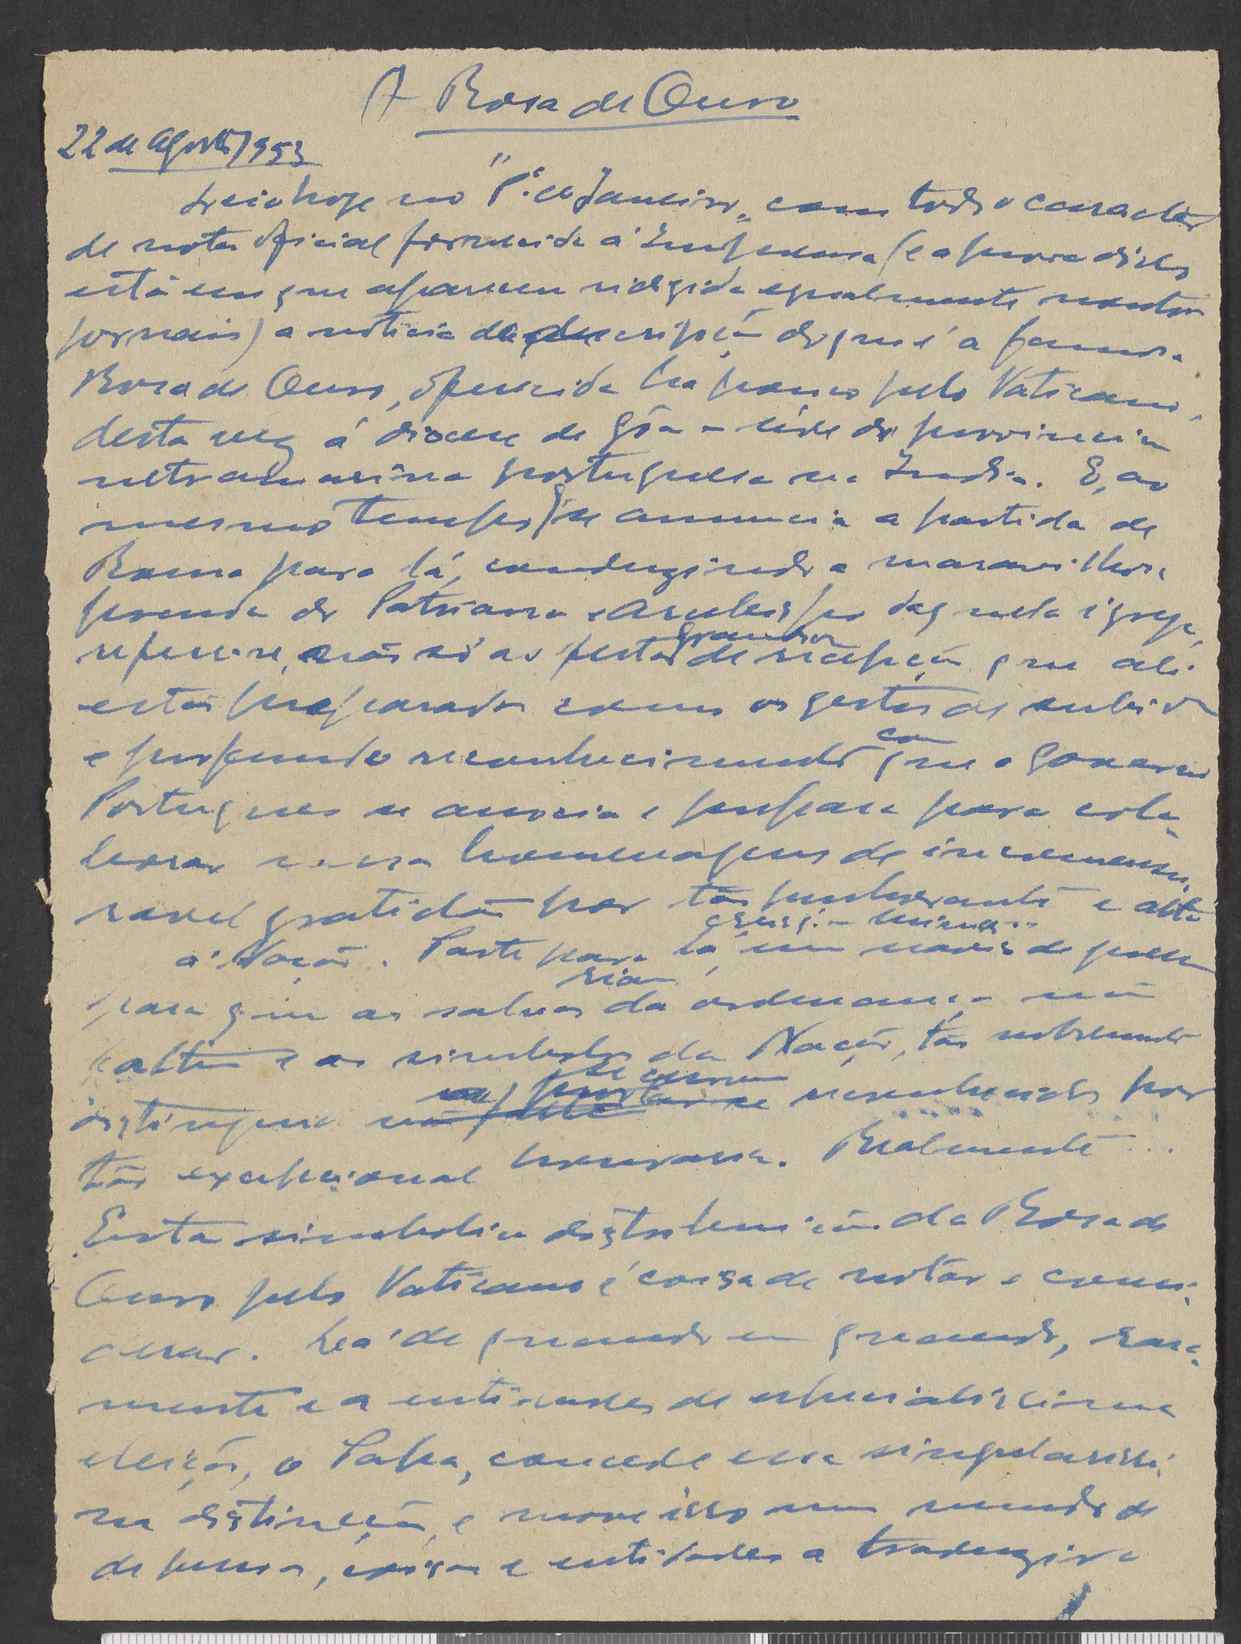 A Rosa de Ouro
22 de Agosto 953
Leio hoje no "1º de Janeiro", com todo o caracter
de nota oficial fornecida á Imprensa (e a prova disso
está em que aparece redigida egualmente noutros
jornais) a noticia da descripção do que é a famosa
Rosa de Ouro, oferecida ha pouco pelo Vaticano,
desta vez á diocese de Gôa – séde da provincia
ultramarina portuguesa na India. E, ao
mesmo tempo, se anuncia a partida de
Roma para lá, conduzindo a maravilhosa
prenda do Patriarca e Arcebispo daquela igreja,
refere-se, não só as festas grandes de recepção que ali
estão preparadas como os gestos de subido
e profundo reconhecimento com que o Governo
Portugues se associa e prepara para cola-
borar nessa homenagem de incomensu-
ravel gratidão por tão penhorante e alta
á Nação. Parte para lá um navio de guerra
para que as salvas da ordenança não
faltem e os simbolos da Nação, tão nobremente
distinguida se curvem reconhecidos por
tão excepcional honraria. Realmente...
Esta simbolica distribuição da Rosa de
Ouro pelo Vaticano é coisa de notar e comu-
nicar. Lá de quando em quando, rara-
mente e a entidades de especialissima
eleição, o Papa, concede essa singularissi-
ma distinção, e move isso um mundo de
de pessoas, coisas e entidades a traduzir